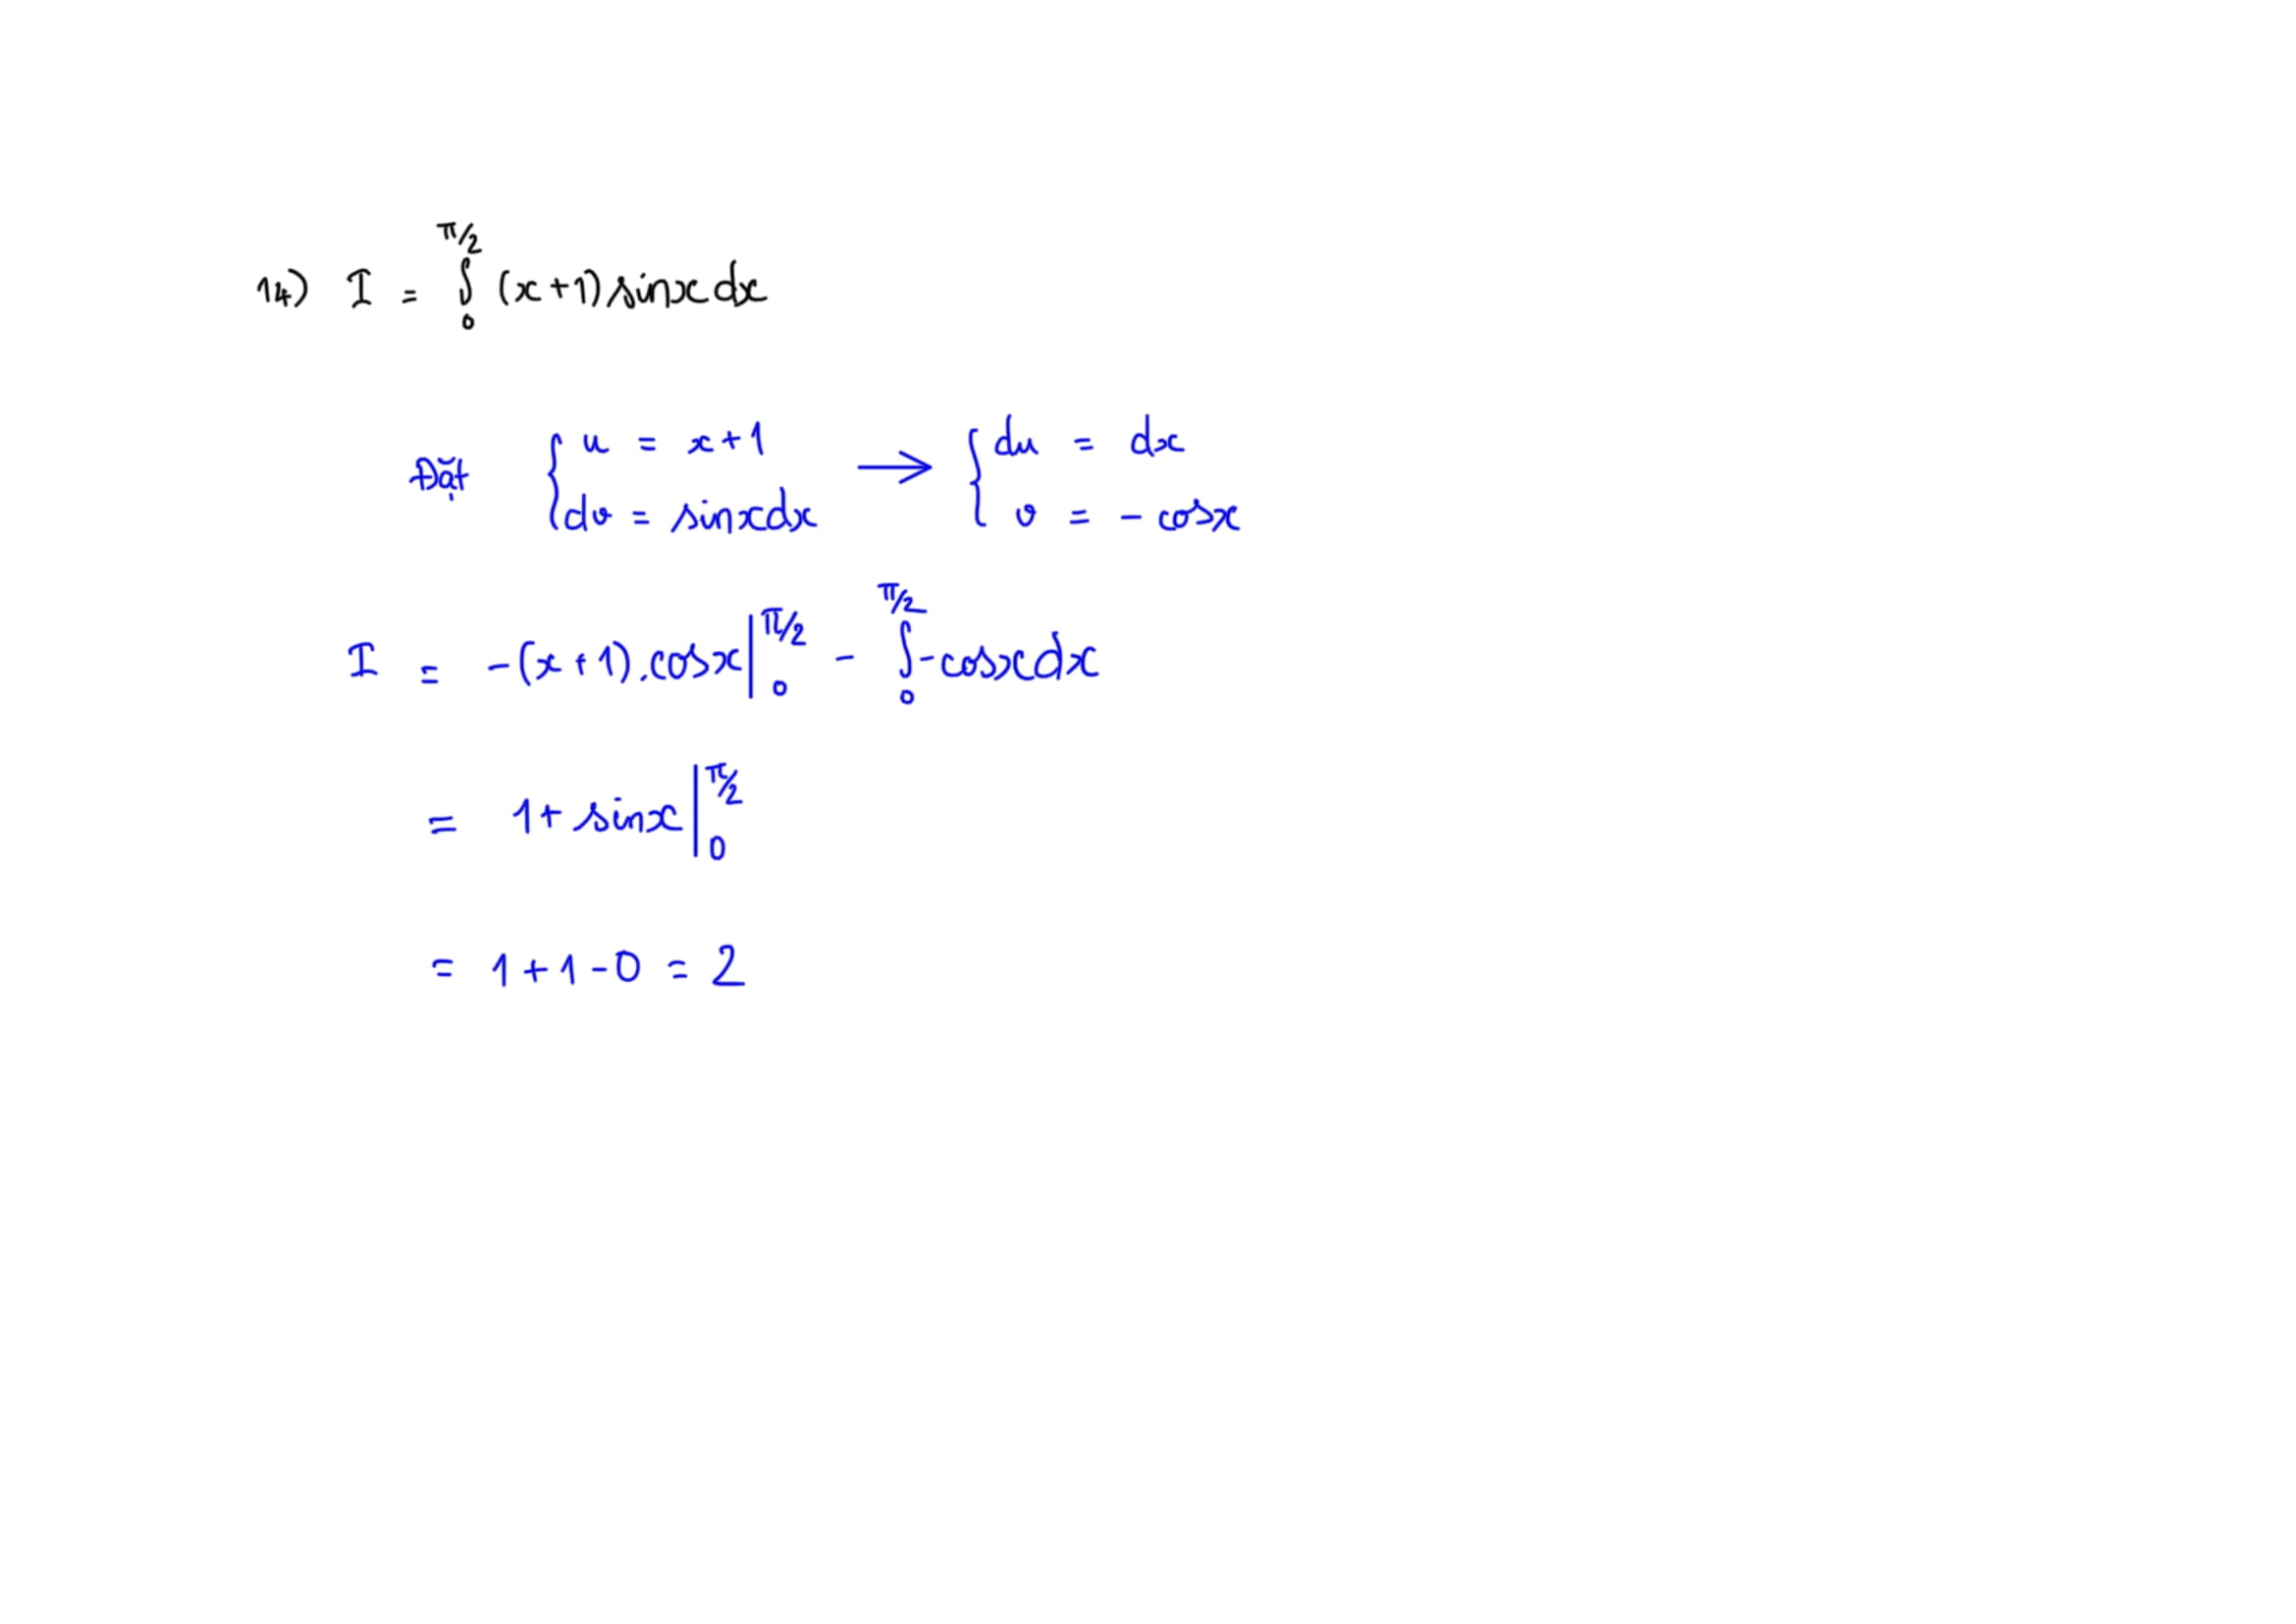 14) I = ∫₀^{π/2} (x+1) sinx dx
Đặt { u = x+1 → { du = dx
dv = sinxdx v = - cosx
I = -(x+1).cosx |₀^{π/2} - ∫₀^{π/2} -cosxdx
= 1+ sinx |₀^{π/2}
= 1+1-0 = 2